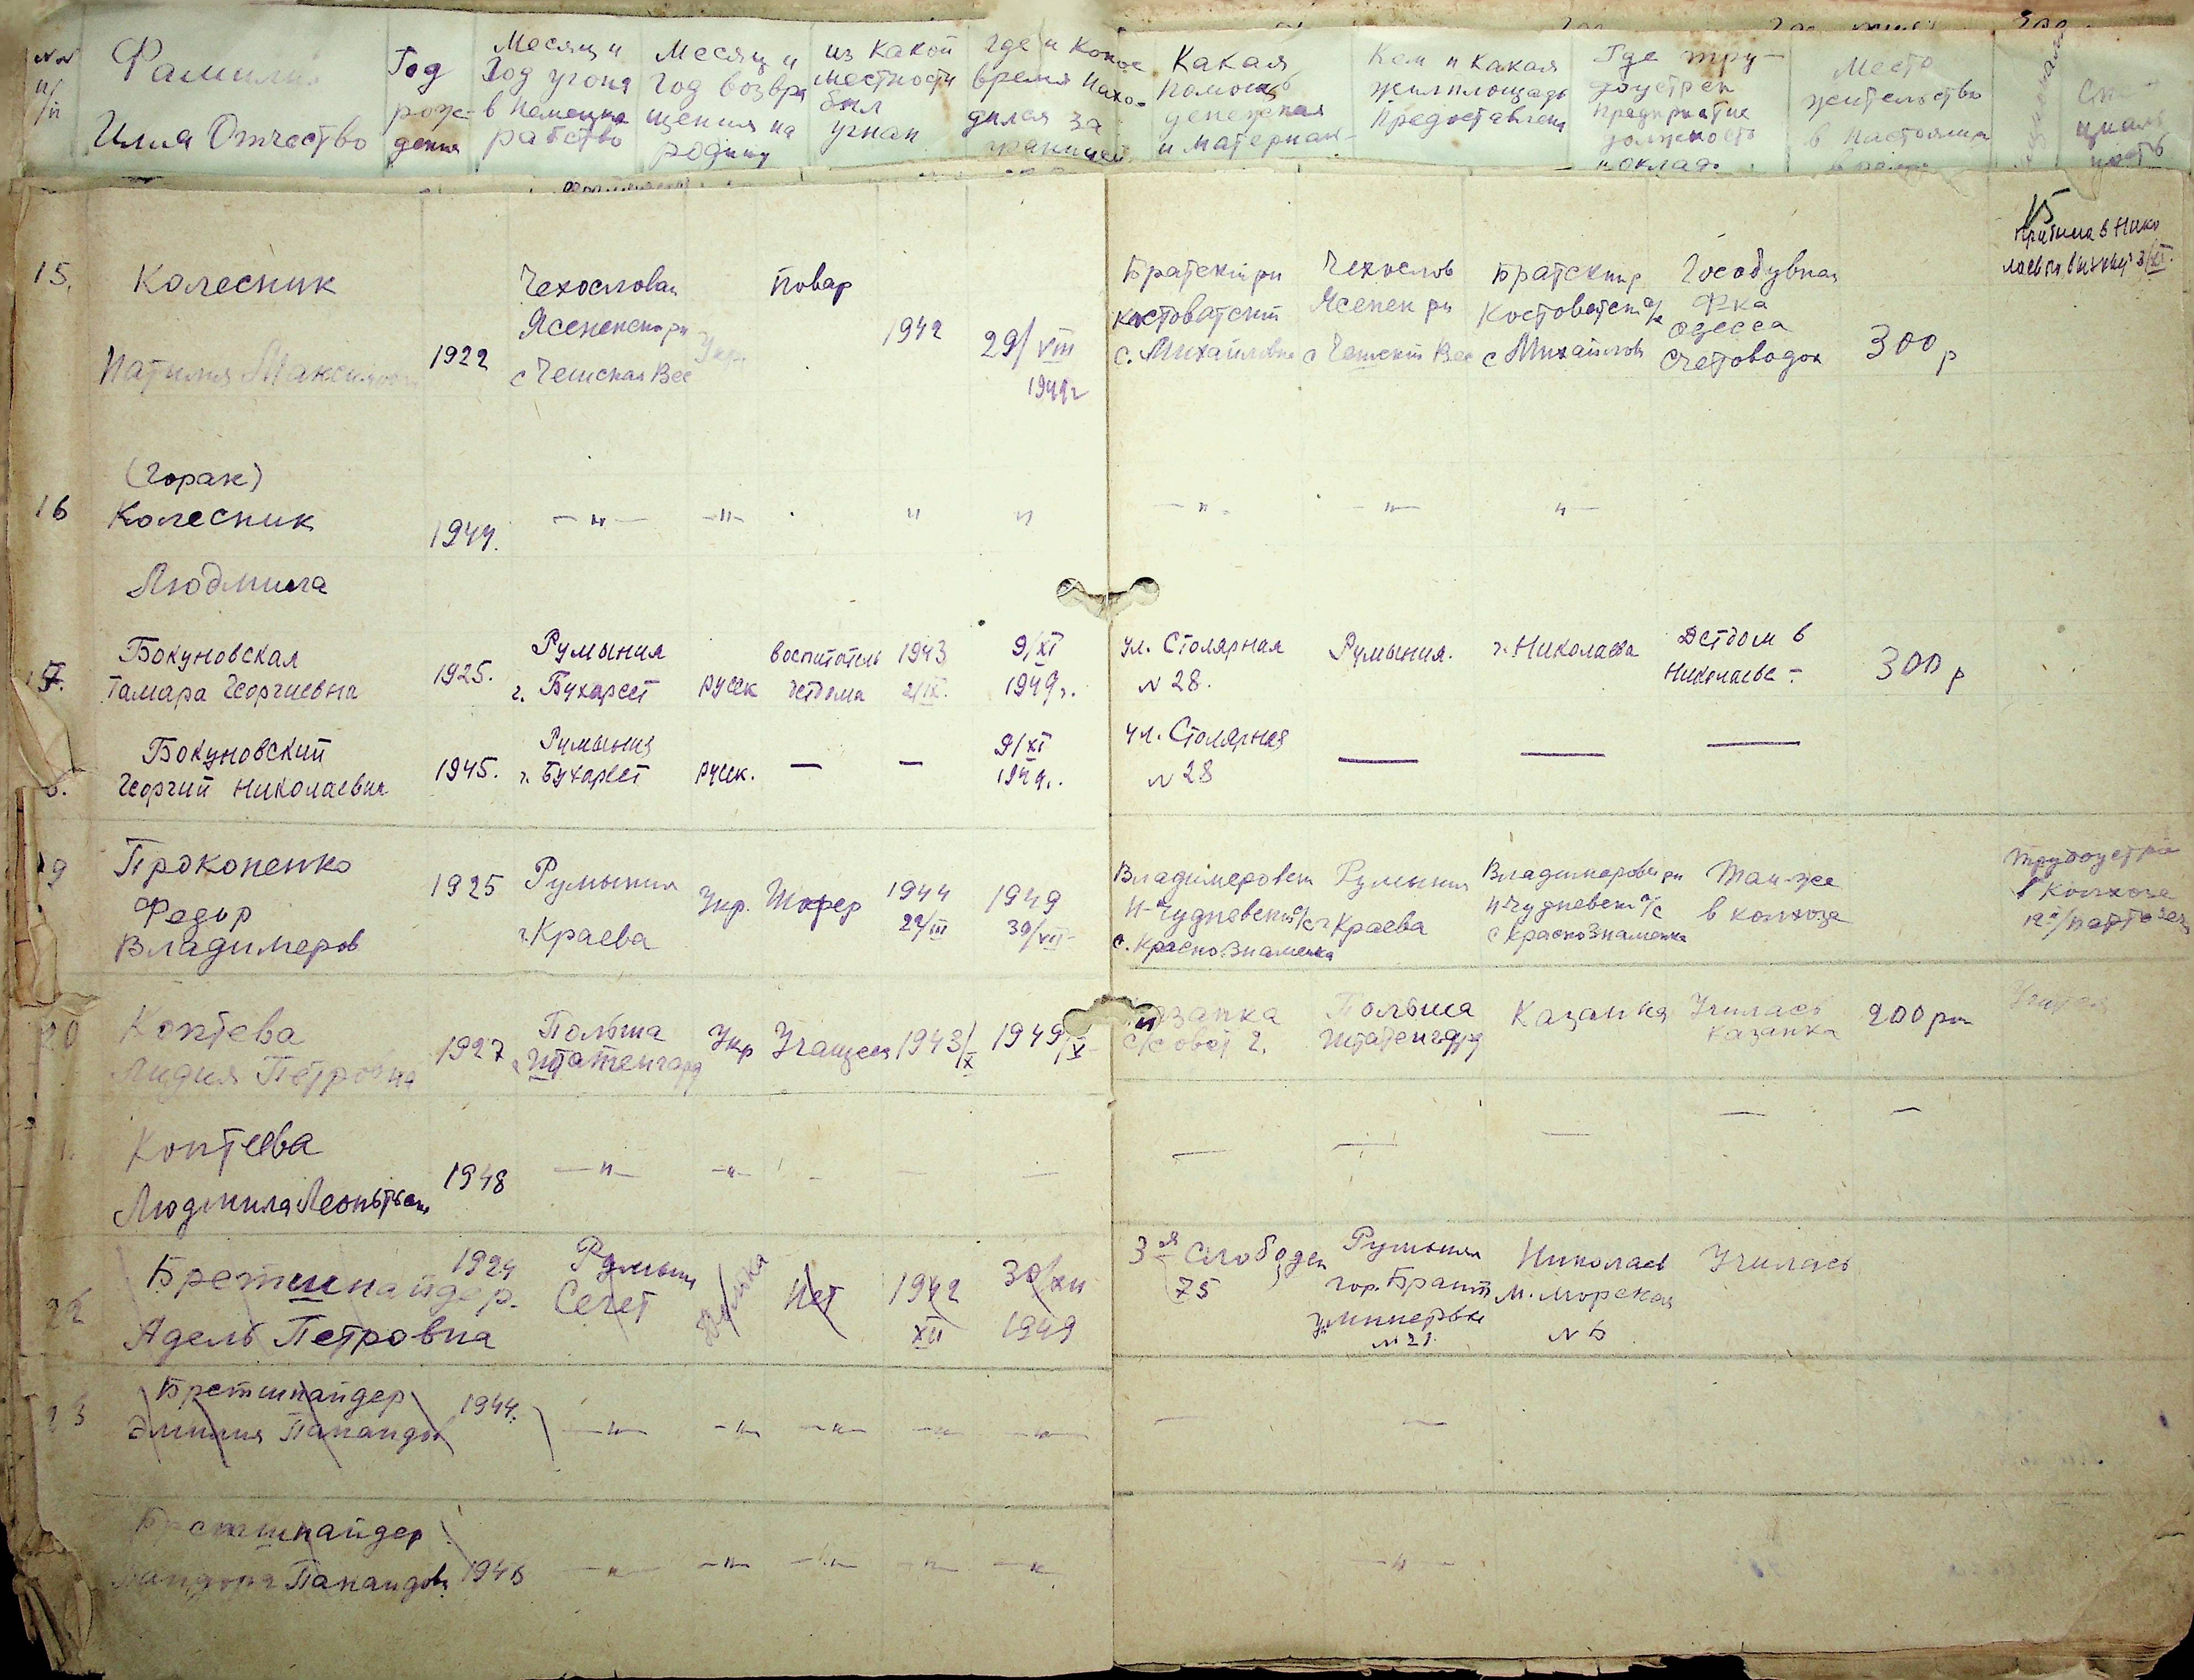 №№ п/п
Фамилия
Имя Отчество
Год
рож-
дения
Месяц и
Год угона
в немецк
рабство
Месяц и
Год возвра
щения на
родину
из какой
местности
был
угнан
где и какое
время нахо-
дился за
границей
Какая
помощь
денежная
и материал-
Кем и какая
жилплощадь
предоставлена
Где тру-
доустроен
предприятие
должность
и оклад.
Место
жительство
в настоящ
15.
Колесник
Наталия Максимов
1922
Чехословак
Ясененск рн
с Чешская Вес
Укр.
повар
1942
29/VIII
1949г
Братский рн
Костоватский
с. Михайловка
Чехослов
Ясенек рн
с Чешский Вес
Братский р
Костоватск с/с
с Михайлов
Гособувная
Ф-ка
Одесса
счетоводом
300 р
16
(Горак)
Колесник
Людмила
1944.
— " —
— " —
"
"
— " —
— " —
" —
17.
Бокуновская
Тамара Георгиевна
1925.
Румыния
г. Бухарест
русск
воспитатель
детдома
1943
2/IX.
9/XI
1949г.
ул. Столярная
№ 28.
Румыния.
г. Николаева
Детдом в
Николаеве -
300 р
8.
Бокуновский
Георгий Николаевич
1945.
Румыния
г. Бухарест
русск.
—
—
9/XI
1949г.
ул. Столярная
№ 28
—
—
—
19
Прокопенко
Федор
Владимеров
1925
Румыния
г. Краева
Укр.
Шофер
1944
22/III
1949
30/VII
Владимеровск
Н-Чудневский с/с
с. Красно-Знаменка
Румыния
г Краева
Владимеровс рн
Н-Чудневск с/с
с Красно Знаменка
Там-же
в колхозе
Трудоустро
в Колхозе
20
Коптева
Лидия Петровна
1927
Польша
г Штатенгард
Укр
Учащеся
1943/X
1949/X
Казанка
с/совет 2.
Польша
Штатенгард
Казанка
Училась
Казанка
200 рн
Коптева
Людмила Леонтьевн
1948
— " —
— " —
—
—
—
—
—
—
—
22
Бретшнайдер
Адель Петровна
1924
Румын
Сечет
Нет
1942
XII
30/XII
1949
3-я Слободск
75
Румыния
гор. Браит
№ 21.
Николаев
М. Морская
№ 5
Училась
23
Бретшнайдер
Эмилия Папандов
1944.
— " —
— " —
— " —
— " —
— " —
—
—
Бретшнайдер
Папандова
1946
— " —
— " —
— " —
— " —
— " —
— " —